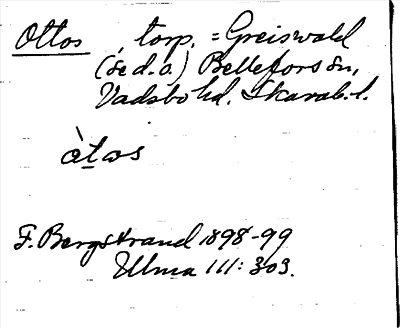 Ottos, torp. = Greiswald
(se d. o.) Bellefors sn,
Vadsbo hd. Skarab. l.
òtas
F. Bergstrand 1898-99
Ulma 111: 303.